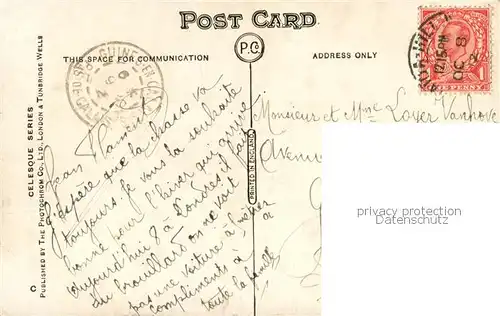 POST CARD.
THIS SPACE FOR COMMUNICATION
P.C.
ADDRESS ONLY
12.15 PM
ONE PENNY
GUINES
CELESQUE SERIES
PUBLISHED BY THE PHOTOCHROM CO. LTD., LONDON & TUNBRIDGE WELLS
C
PRINTED IN ENGLAND
Jean Flament
J'espère que la chasse va
toujours. Je vous la souhaite
bonne pour l'hiver qui arrive
Aujourd'hui 8 à Londres il fait
du brouillard on ne voit
pas une voiture à mètres
compliments à
toute la famille
Monsieur et Mme Loyer Vanhove
Avenue
privacy protection
Datenschutz